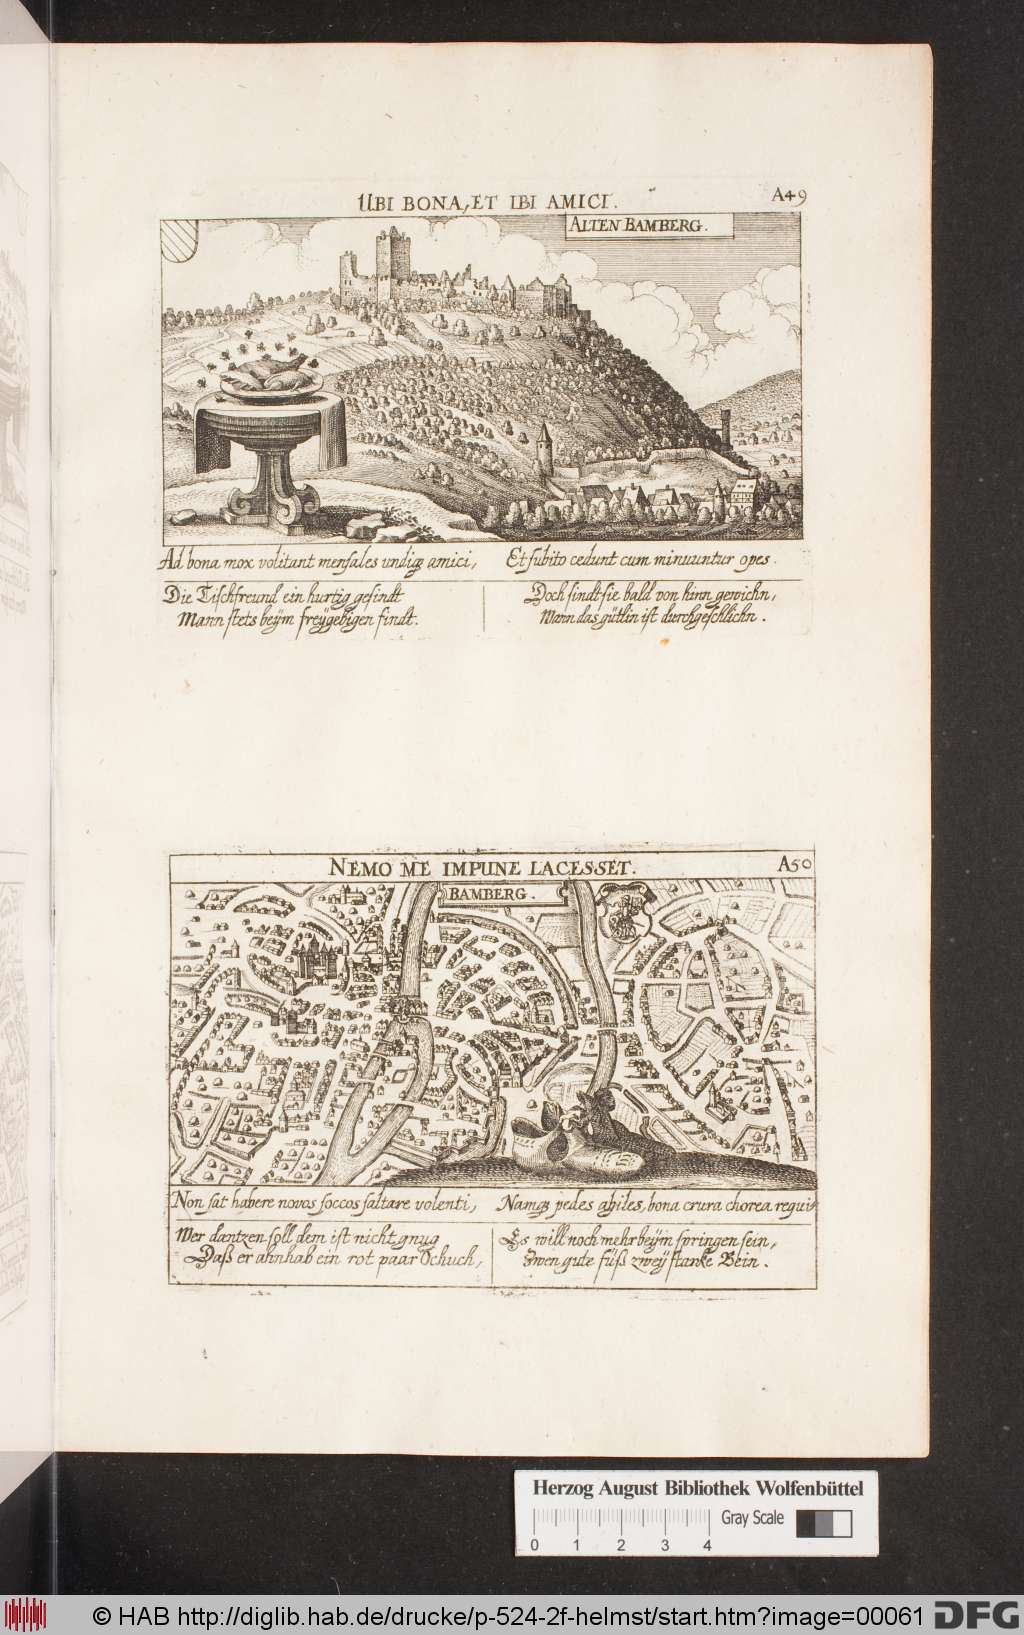 UBI BONA, ET IBI AMICI.
A49
ALTEN BAMBERG.
Ad bona mox volitant mensales undiqꝫ amici, Et subito cedunt cum minuuntur opes.
Die Tischfreund ein hurtig gesindt
Mann stets beÿm freÿgebigen findt.
Doch sindt sie bald von hinn gewichn,
Wann das gütlin ist durchgeschlichn.
NEMO ME IMPUNE LACESSET.
A50
BAMBERG.
Non sat habere novos soccos saltare volenti, Namqꝫ pedes abiles, bona crura chorea requi
Wer dantzen soll dem ist nicht gnug
Daß er ahnhab ein rot paar Schuch,
Es will noch mehr beÿm springen sein,
Zwen gute füß zweÿ starke Bein.
Herzog August Bibliothek Wolfenbüttel
Gray Scale
0 1 2 3 4
© HAB http://diglib.hab.de/drucke/p-524-2f-helmst/start.htm?image=00061
DFG